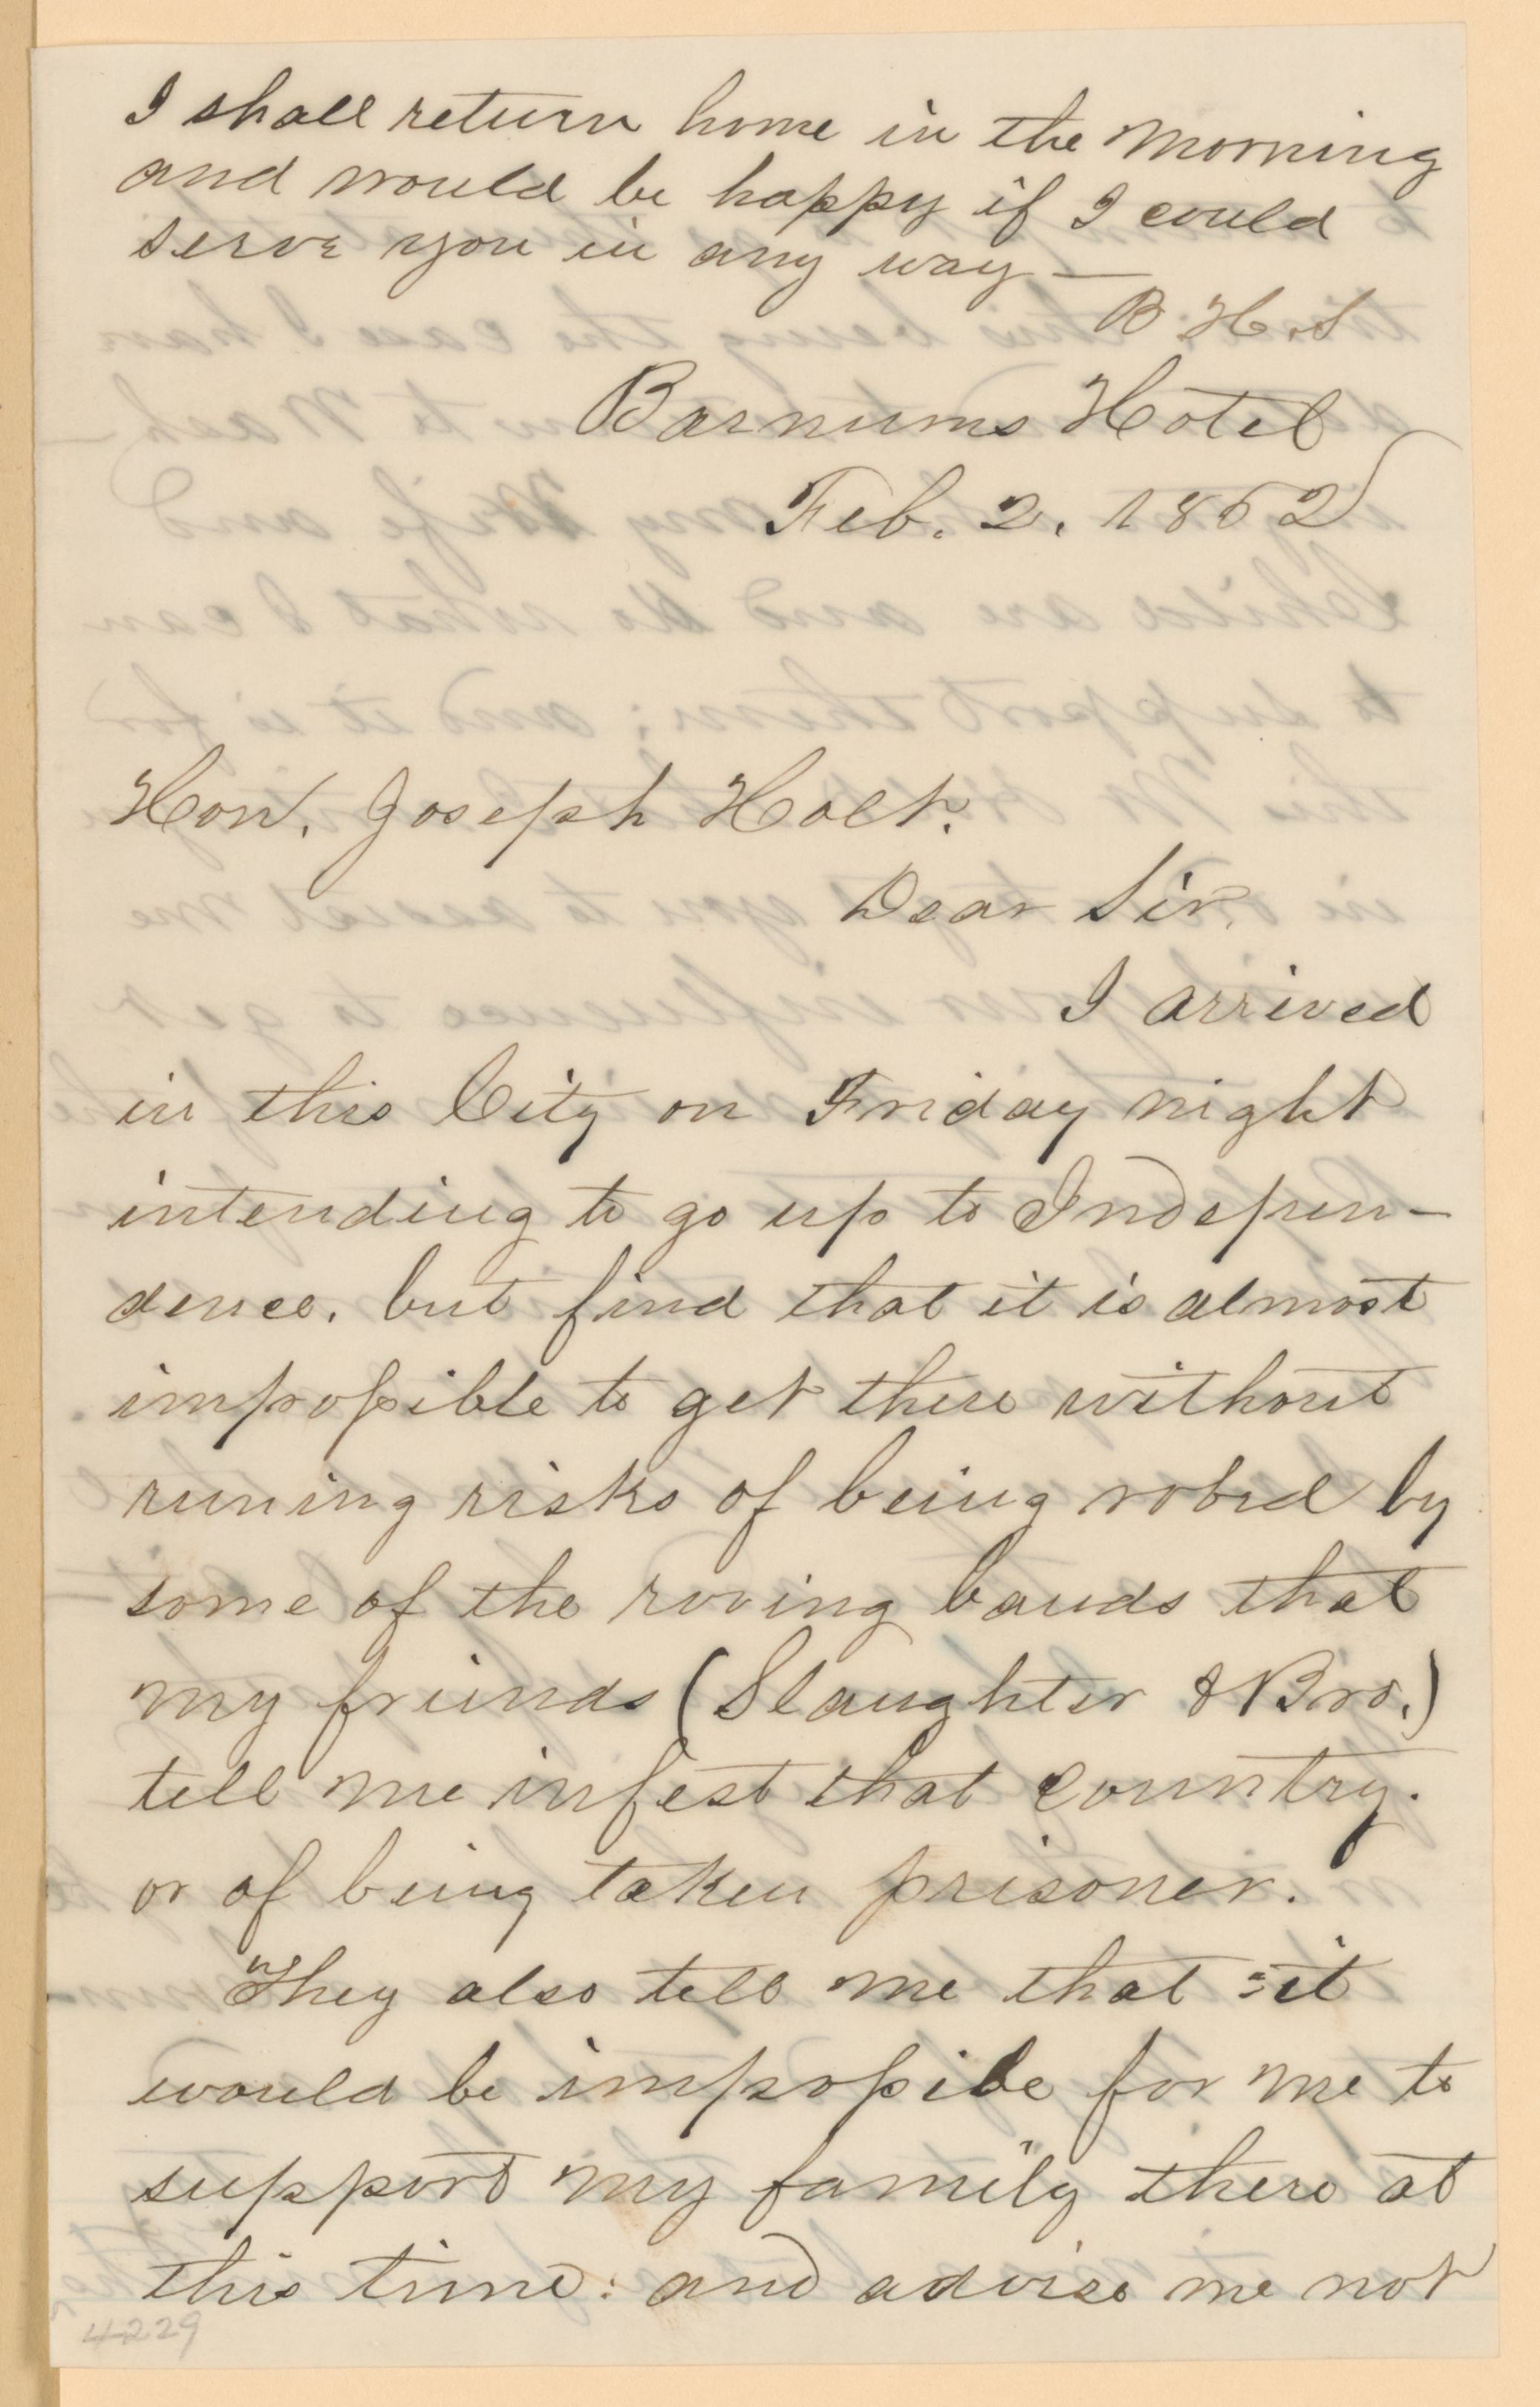 I shall return home in the morning
and would be happy if I could
serve you in any way —
B H. S
Barnums Hotel
Feb. 2. 1862
Hon. Joseph Holt.
Dear Sir.
I arrived
in this City on Friday night
intending to go up to Indepen-
dence. but find that it is almost
impossible to get there without
runing risks of being robed by
some of the roving bands that
my friends (Slaughter & Bro.)
tell me infest that country.
or of being taken prisoner.
They also tell me that it
would be impossible for me to
support my family there at
this time: and advise me not
4229